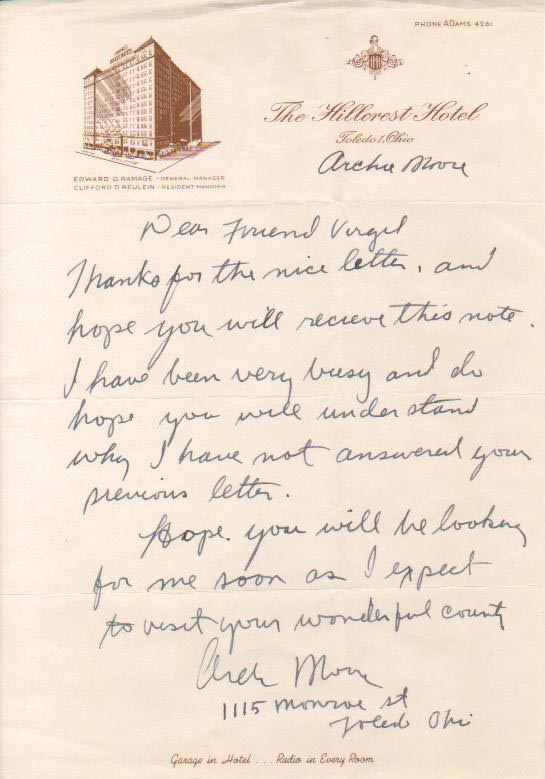 PHONE ADAMS 4261
The Hillcrest Hotel
Toledo 1, Ohio
Archie Moore
EDWARD D. RAMAGE - GENERAL MANAGER
CLIFFORD D. REULEIN - RESIDENT MANAGER
Dear Friend Virgil
Thanks for the nice letter, and
hope you will recieve this note.
I have been very busy and do
hope you will understand
why I have not answered your
previous letter.
Hope you will be looking
for me soon as I expect
to visit your wonderful county
Archie Moore
1115 Monroe st
Toledo Ohi
Garage in Hotel . . . Radio in Every Room